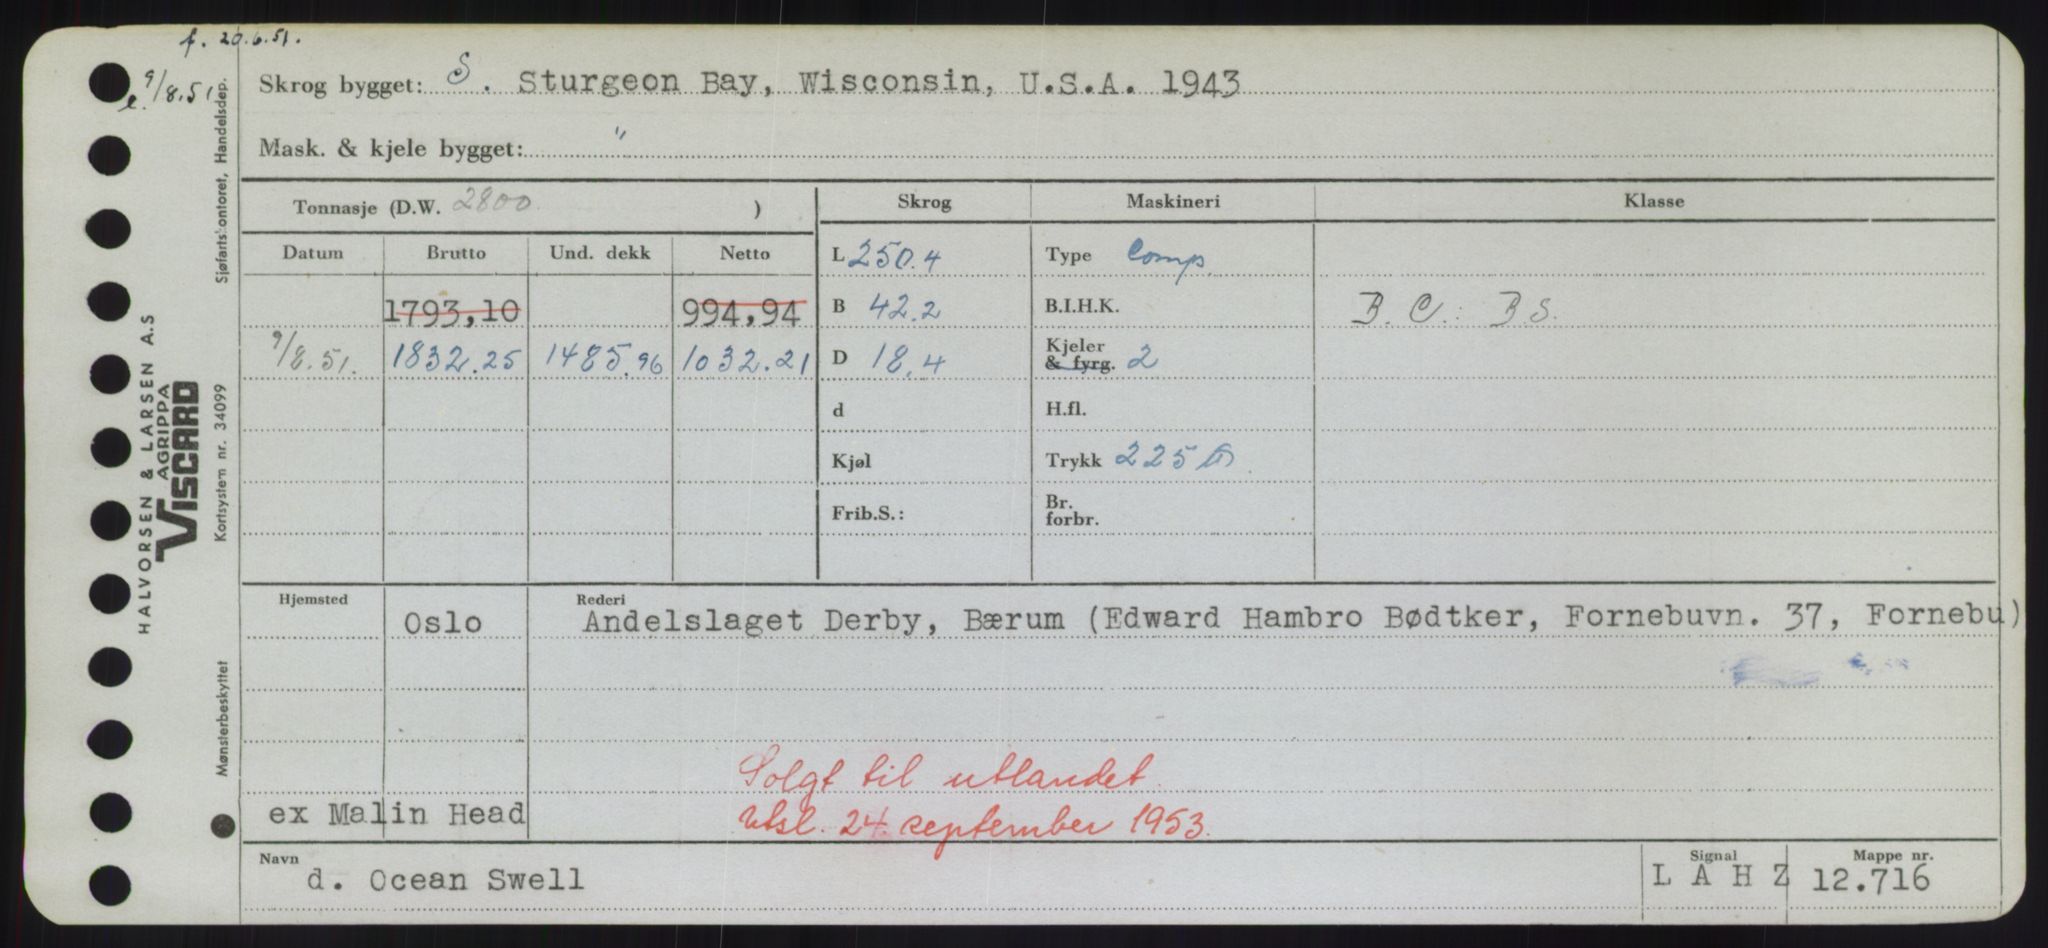 f. 20.6.51.
e. 9/8.51
Skrog bygget: S. Sturgeon Bay, Wisconsin, U.S.A. 1943
Mask. & kjele bygget: "
Tonnasje (D.W. 2800 )
Skrog Maskineri Klasse
Datum Brutto Und. dekk Netto
L 250.4 Type Comp.
1793,10 994,94 B 42.2 B.I.H.K. B.C.: B S.
9/8.51. 1832.25 1485.96 1032.21 D 18.4 Kjeler & fyrg. 2
d H.fl.
Kjøl Trykk 225
Frib.S.: Br. forbr.
Hjemsted Rederi
Oslo Andelslaget Derby, Bærum (Edward Hambro Bødtker, Fornebuvn. 37, Fornebu)
Solgt til utlandet.
ex Malin Head utsl. 24. september 1953.
Navn Signal Mappe nr.
d. Ocean Swell L A H Z 12.716
HALVORSEN & LARSEN A.S
AGRIPPA
VISCARD
Mønsterbeskyttet Kortsystem nr. 34099 Sjøfartskontoret, Handelsdep.